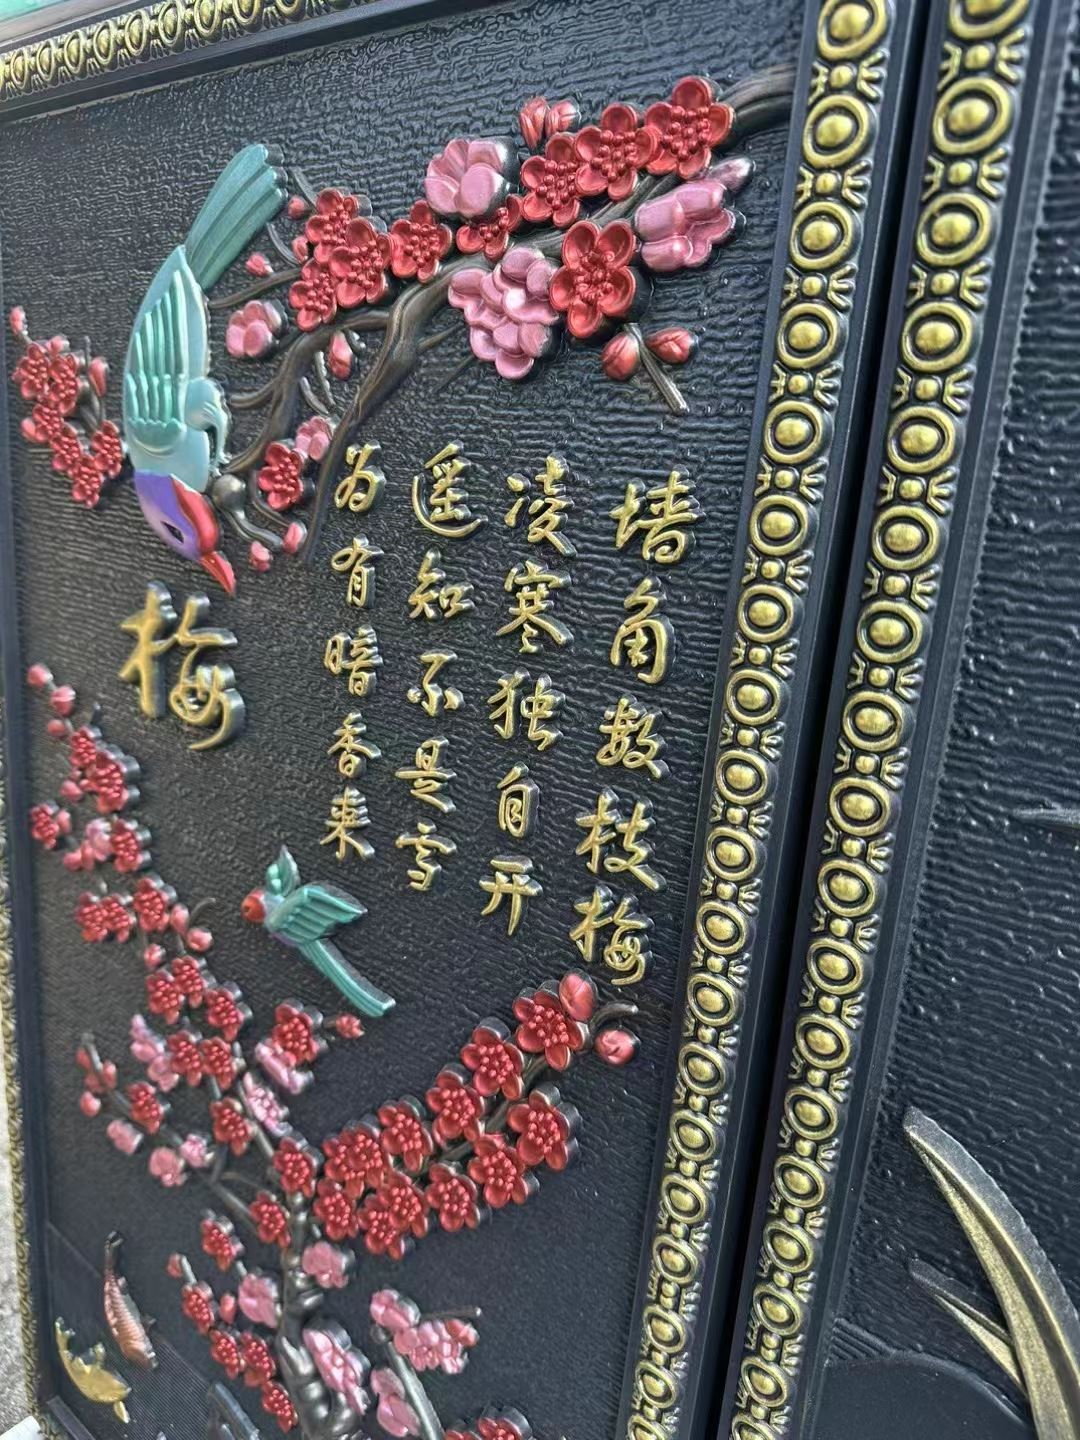 墙角数枝梅
凌寒独自开
遥知不是雪
为有暗香来
梅